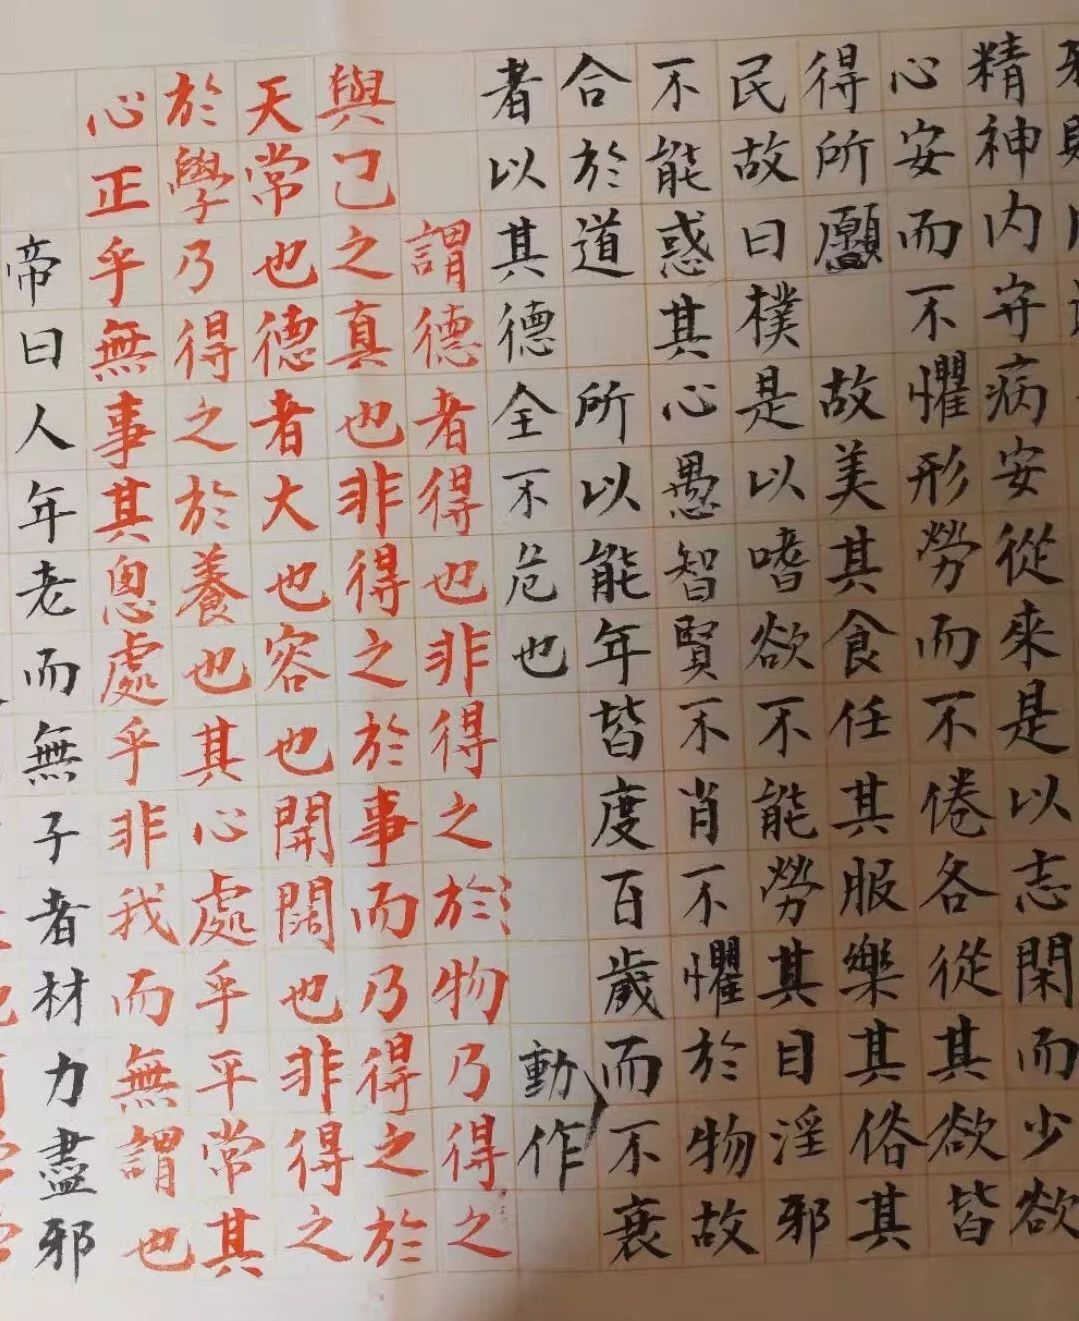 精神内守病安從來是以志閑而少欲
心安而不懼形勞而不倦各從其欲皆
得所願故美其食任其服樂其俗其
民故曰樸是以嗜欲不能勞其目淫邪
不能惑其心愚智賢不肖不懼於物故
合於道所以能年皆度百歲而不衰
者以其德全不危也動作
謂德者得也非得之於物乃得之
與己之真也非得之於事而乃得之於
天常也德者大也容也開闊也非得之
於學乃得之於養也其心處乎平常其
心正乎無事其恖處乎非我而無謂也
帝曰人年老而無子者材力盡邪